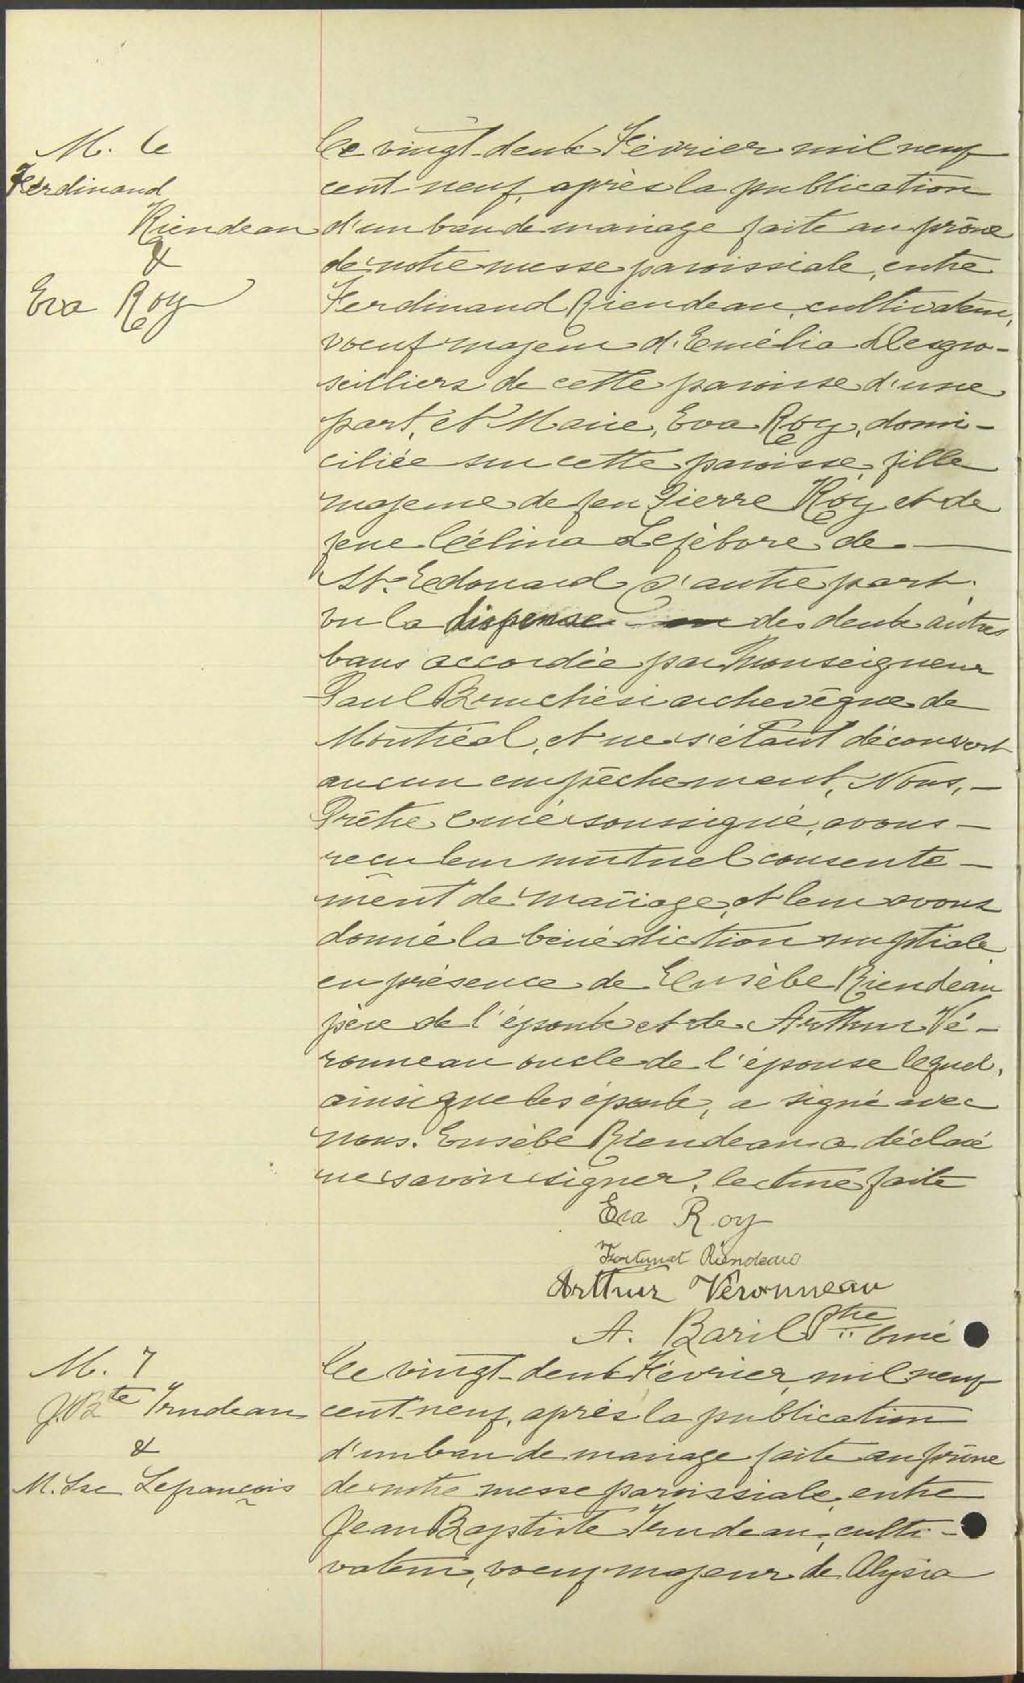 M. 6
Ferdinand
Riendeau
&
Eva Roy
Le vingt-deux Février mil neuf
cent-neuf, après la publication
d'un ban de mariage faite au prône
de notre messe paroissiale, entre
Ferdinand Riendeau, cultivateur,
voeuf majeur d'Emélia Desgro-
seilliers de cette paroisse d'une
part, et Marie, Eva Roy, domi-
ciliée sur cette paroisse, fille
majeure de feu Pierre Roy et de
feue Célina Lefebvre de
St. Edouard d'autre part.
vu la dispense des deux autres
bans accordée par Monseigneur
Paul Bruchési archevêque de
Montréal, et ne s'étant découvert
aucun empêchement, Nous,
Prêtre Curé soussigné, avons
reçu leur mutuel consente-
ment de mariage, et leur avons
donné la bénédiction nuptiale
en présence de Eusèbe Riendeau
père de l'époux et de Arthur Vé-
ronneau oncle de l'épouse lequel,
ainsi que les époux, a signé avec
nous. Eusèbe Riendeau a déclaré
ne savoir signer. lecture faite
Eva Roy
Fortunat Riendeau
Arthur Véronneau
A. Baril Ptre Curé
M. 7
J. Bte Trudeau
&
M. Lse Lefrançois
Le vingt-deux Février, mil neuf
cent-neuf, après la publication
d'un ban de mariage faite au prône
de notre messe paroissiale, entre
Jean Baptiste Trudeau, culti-
vateur, voeuf majeur de Alysia